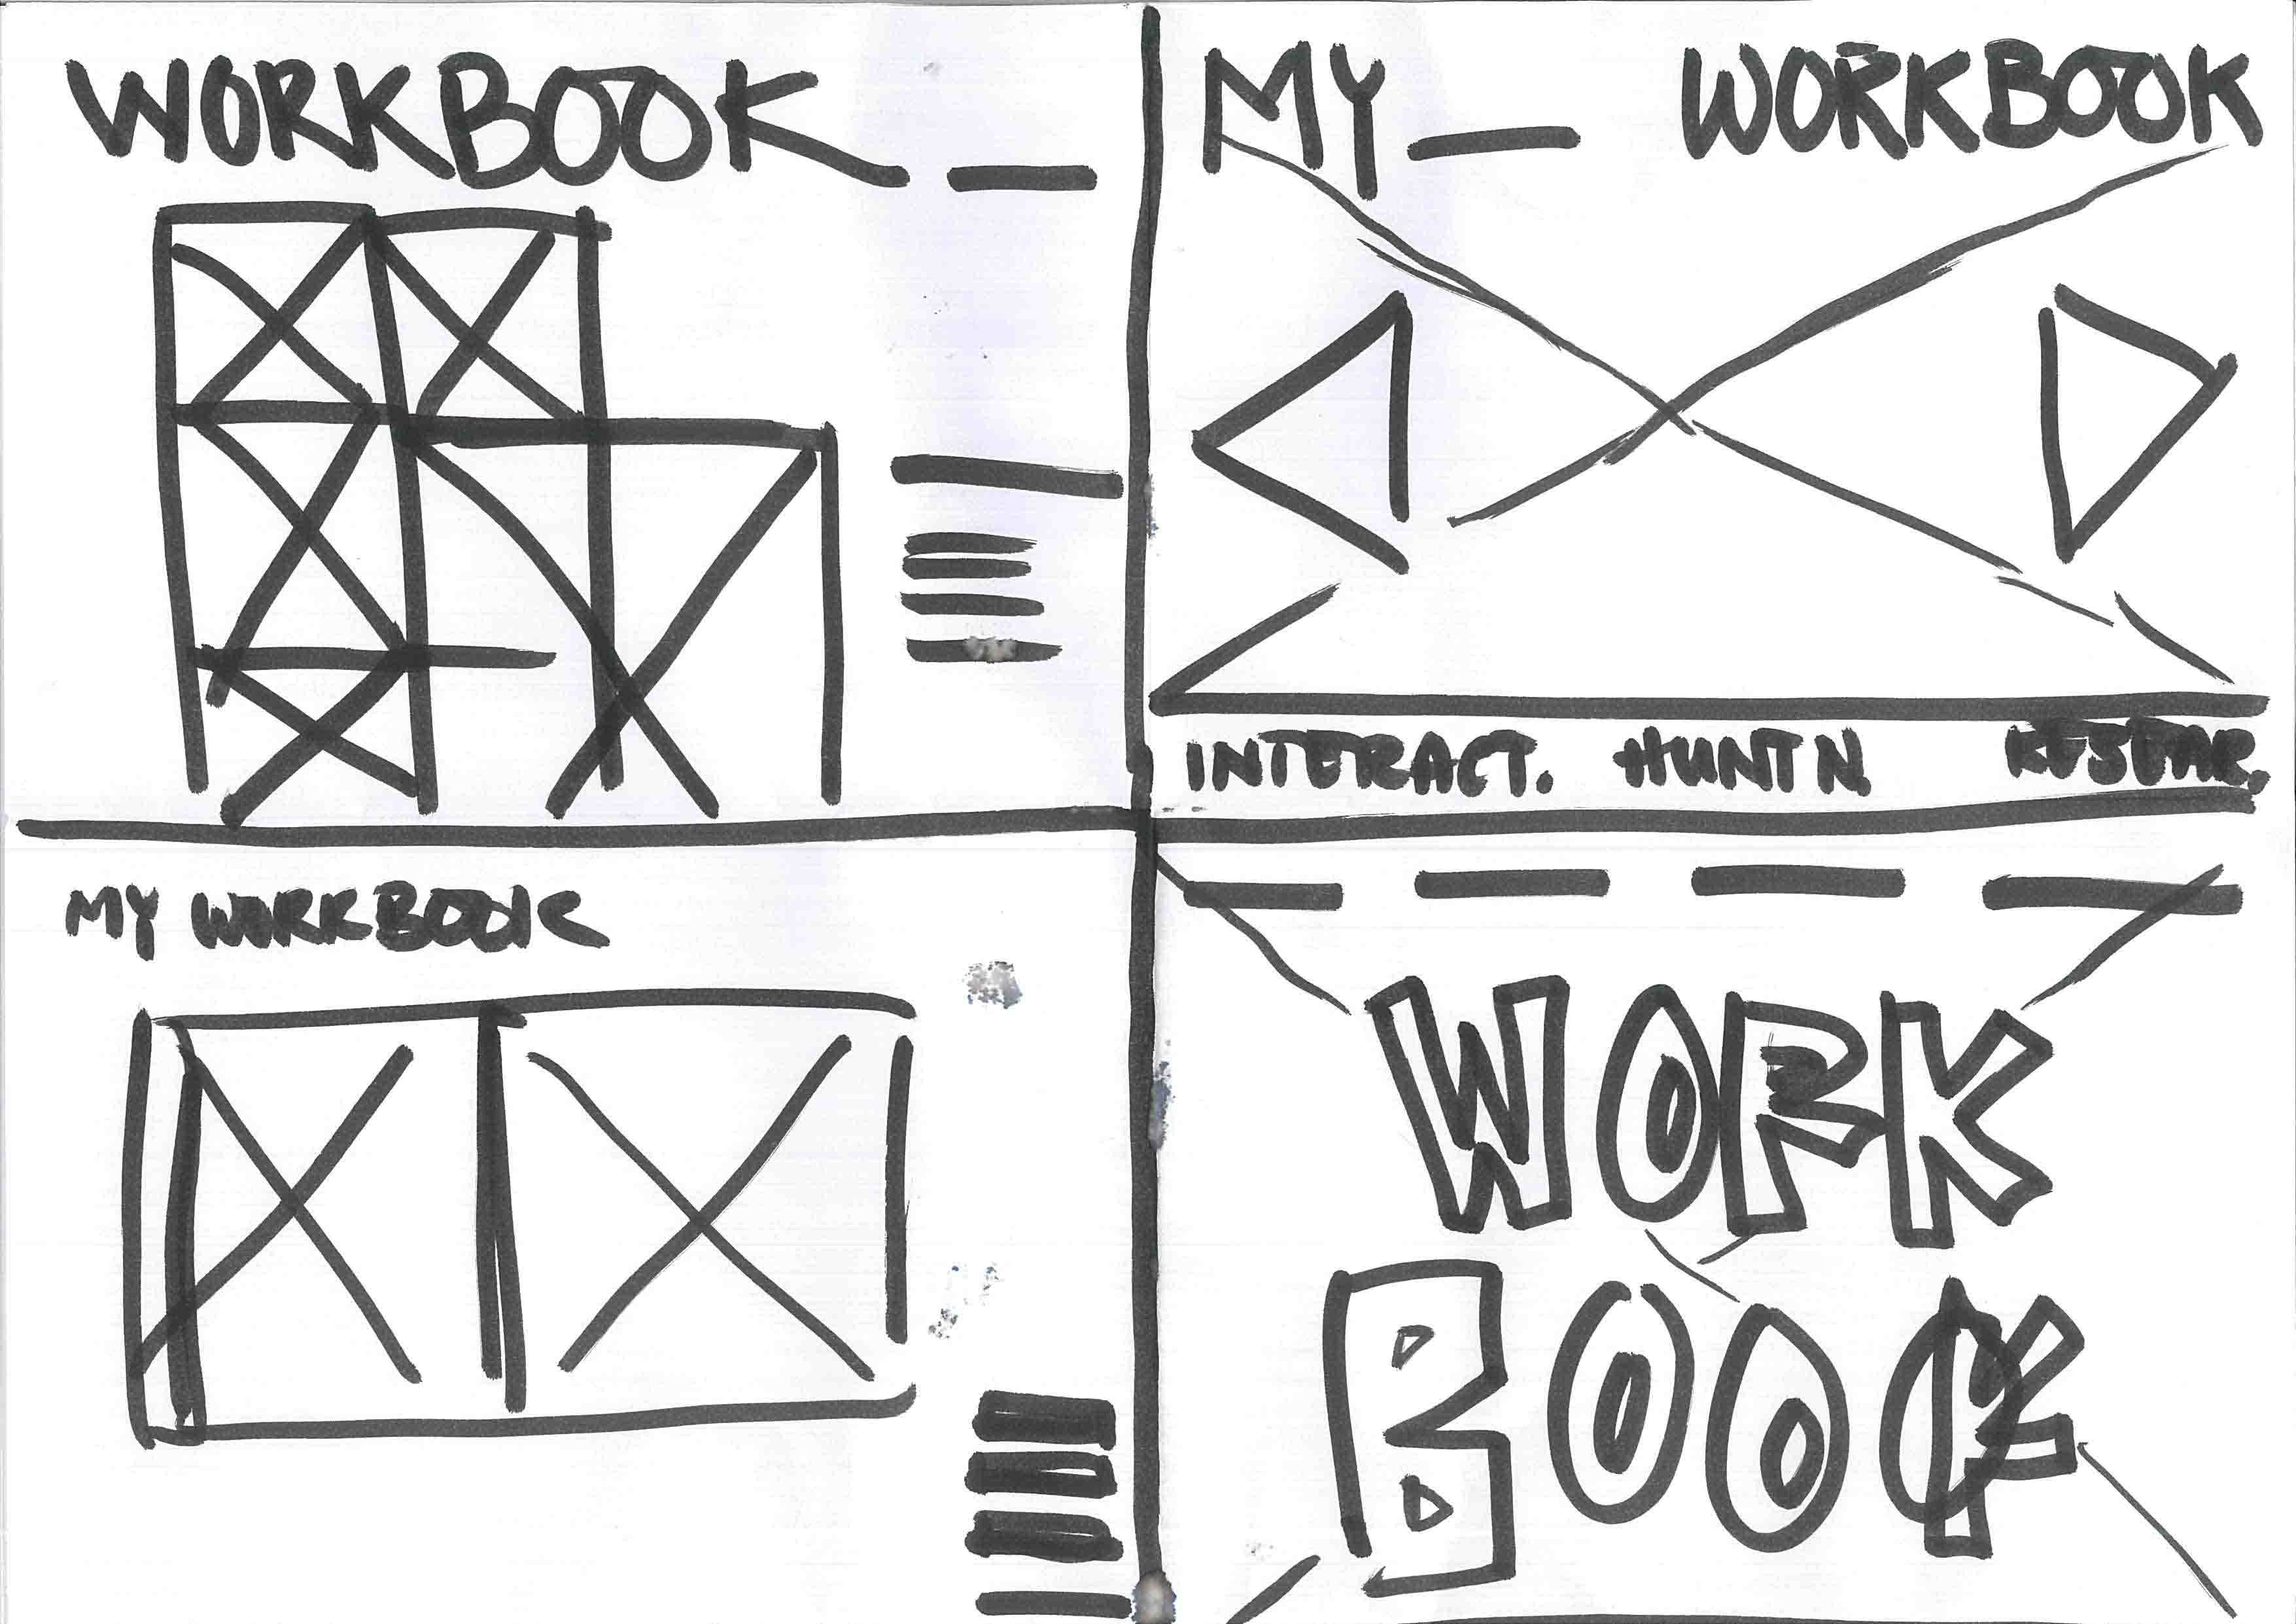 WORKBOOK
MY WORKBOOK
INTERACT. HUNTN RESEAR.
MY WORKBOOK
WORK
BOOK